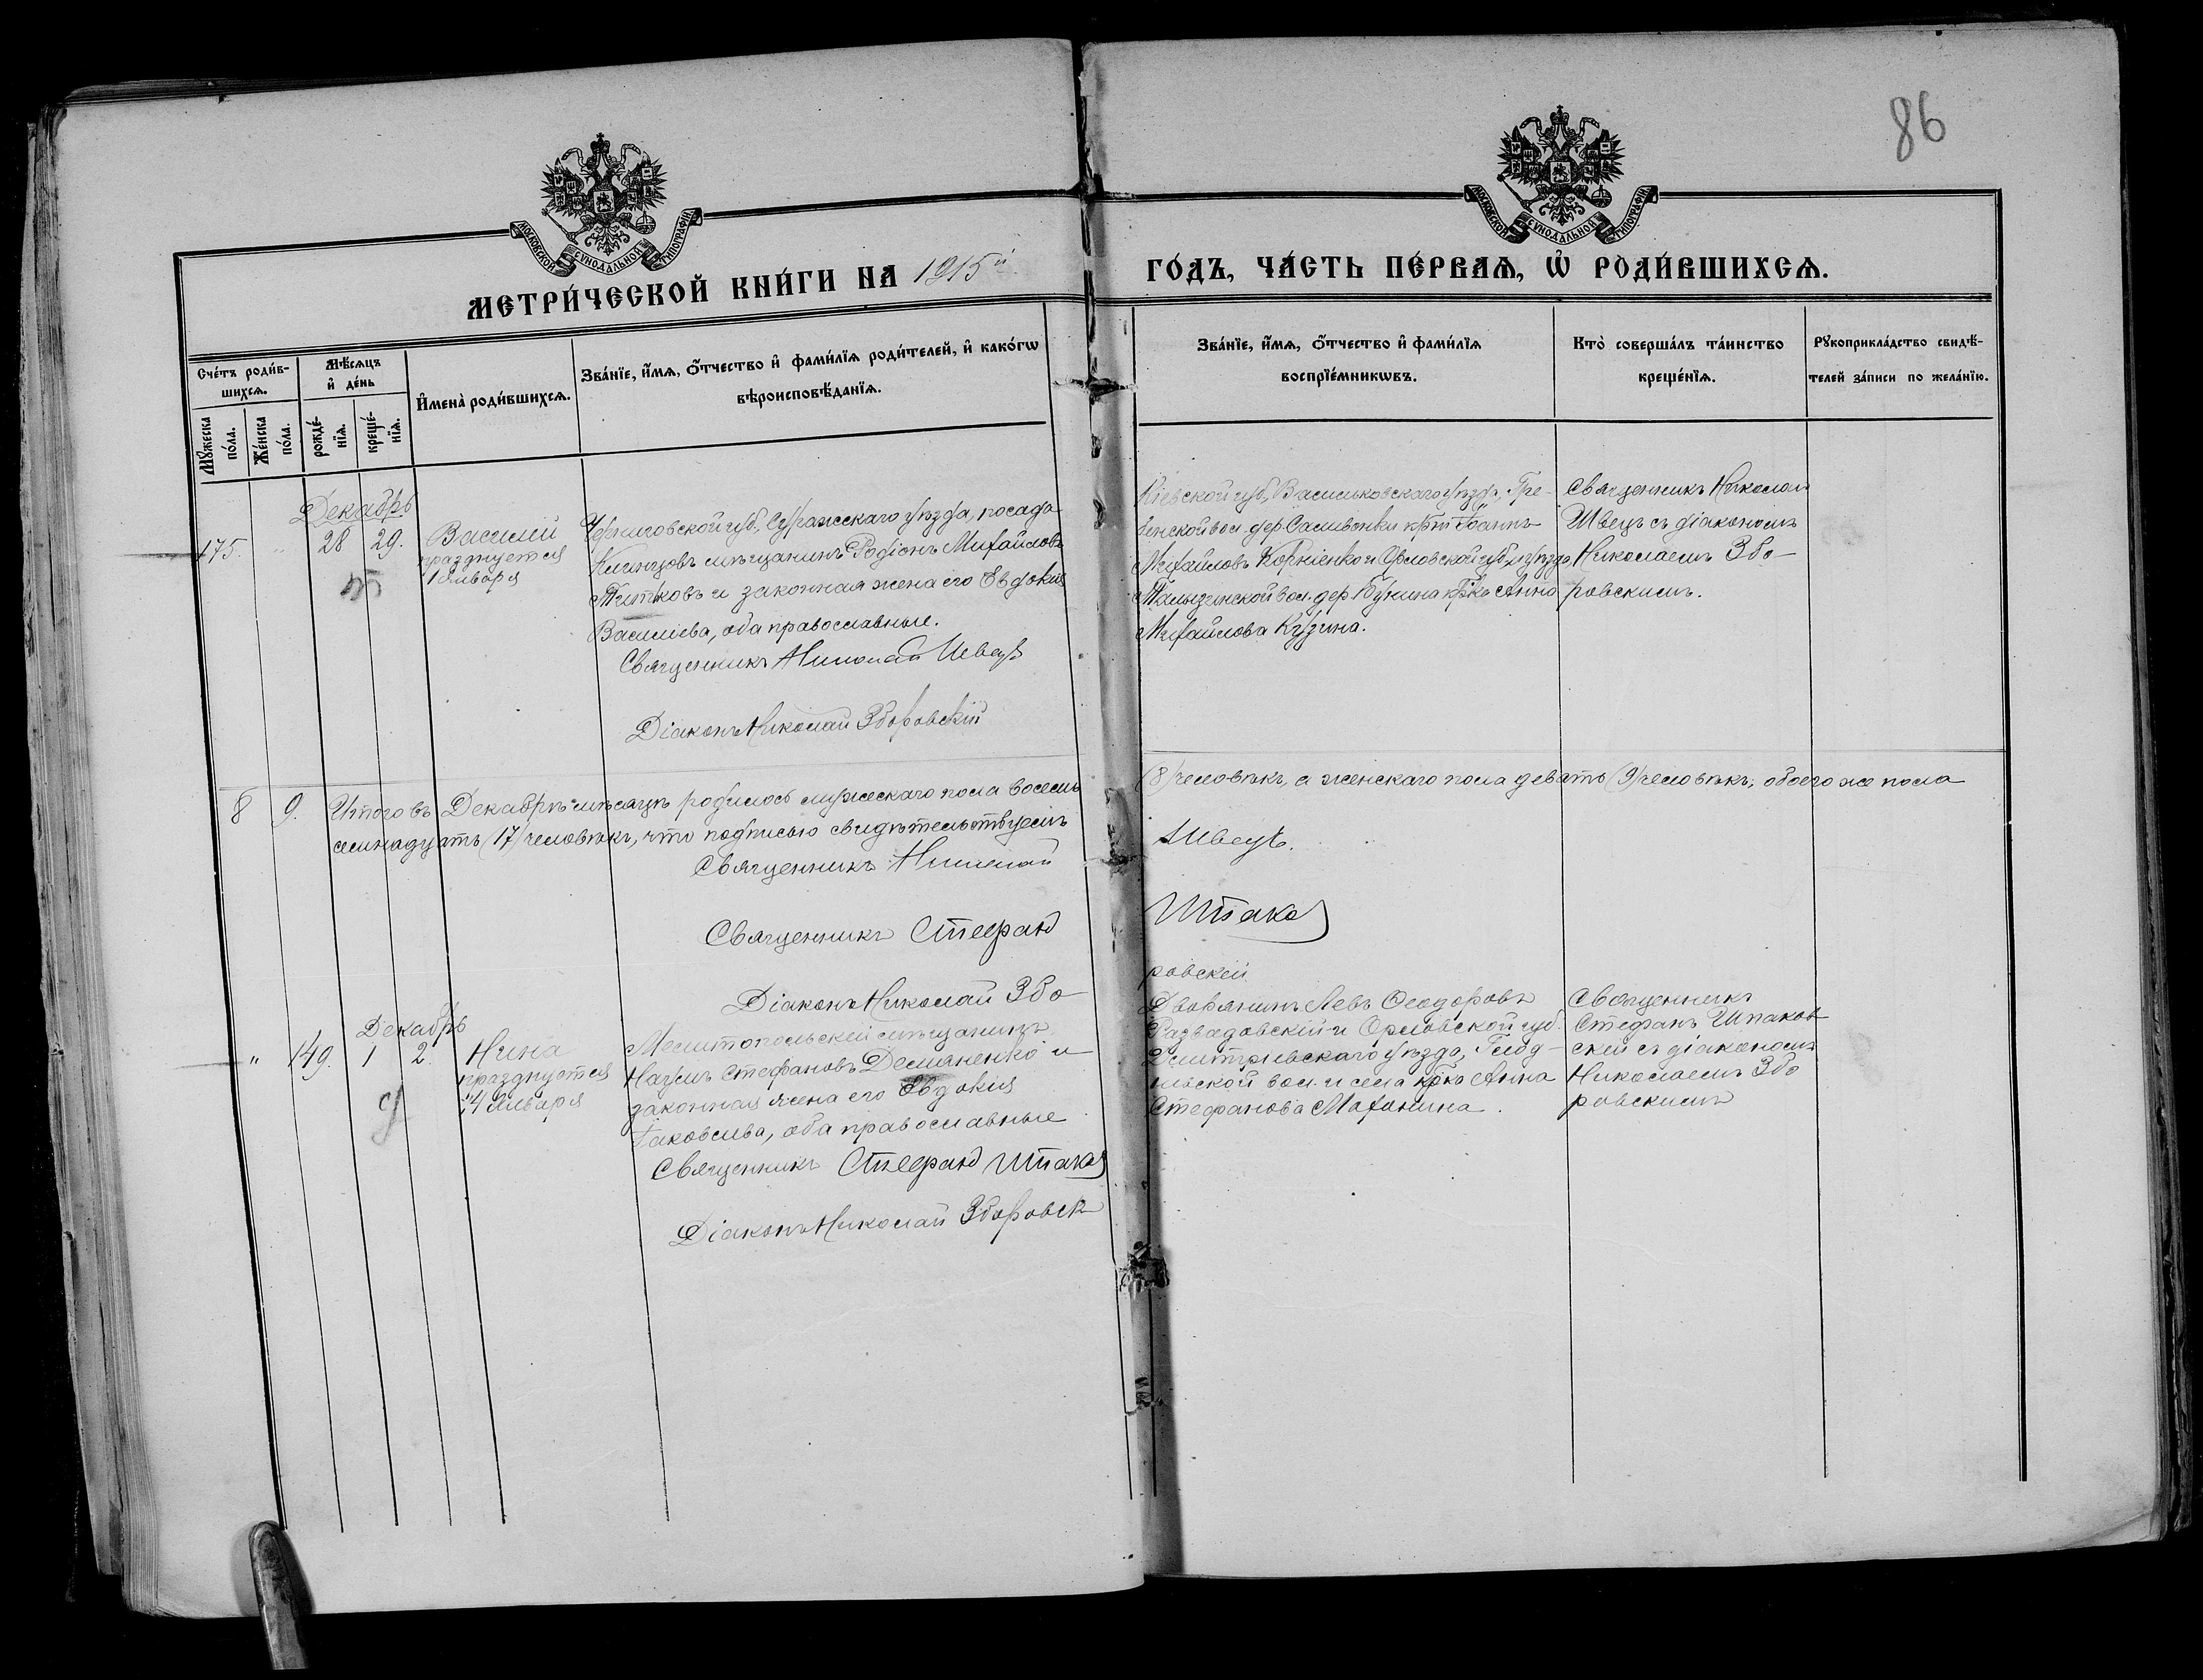 86
МОСКОВСКОЙ СѴНОДАЛЬНОЙ ТИПОГРАФІИ
МОСКОВСКОЙ СѴНОДАЛЬНОЙ ТИПОГРАФІИ
МЕТРИ́ЧЕСКОЙ КНИ́ГИ НА 1915й
ГО́ДЪ, ЧА́СТЬ ПЕ́РВАѦ, Ѡ҆ РОДИ́ВШИХСѦ.
Сче́тъ роди́в-
шихсѧ.
Мꙋ́жеска
по́ла.
Же́нска
по́ла.
Мѣ́сѧцъ
и҆ де́нь
рожде́-
нїѧ.
креще́-
нїѧ.
И҆мена̀ роди́вшихсѧ.
Зва́нїе, и҆́мѧ, ѻ҆́тчество и҆ фами́лїѧ роди́телей, и҆ како́гѡ
вѣроисповѣ́данїѧ.
Зва́нїе, и҆́мѧ, ѻ҆́тчество и҆ фами́лїѧ
воспрїе́мникѡвъ.
Кто̀ соверша́лъ та́инство
креще́нїѧ.
Рꙋкоприкла́дство свидѣ́-
телей за́писи по жела́нїю.
Декабрь
175. " 28 29.
Василій
празднуется
1 Января
Черниговской губ., Суражскаго уѣзда, посада
Клинцовъ мѣщанинъ Родіонъ Михайловъ
Титковъ и законная жена его Евдокія
Василіева, оба православные.
Священникъ Николай Швецъ
Діаконъ Николай Зборовскій
Кіевской губ., Васильковскаго уѣзда, Гре-
бенской вол. дер. Саливонки крт. Іоаннъ
Михайловъ Корніенко и Орловской губ. и уѣзда
дер. Букина крка Анна
Михайлова Кузина.
Священникъ Николай
Швецъ съ діакономъ
Николаемъ Збо-
ровскимъ.
8 9. Итого въ Декабрѣ мѣсяцѣ родилось мужескаго пола восемь
(8) человѣкъ, а женскаго пола девять (9) человѣкъ, обоего же пола
семнадцать (17) человѣкъ, что подписью свидѣтельствуемъ
Священникъ Николай
Швецъ.
Священникъ Стефанъ
Шпаков
Діаконъ Николай Збо-
ровскій
Декабрь
" 149. 1 2.
Нина
празднуется
14 Января
Мелитопольскій мѣщанинъ
Наумъ Стефановъ Демяненко и
законная жена его Евдокія
Іаковлева, оба православные
Священникъ Стефанъ Шпаков
Діаконъ Николай Зборовск
Дворянинъ Левъ Ѳеодоровъ
Развадовскій и Орловской губ.
Дмитріевскаго уѣзда,
вол. и села крка Анна
Стефанова Маханина.
Священникъ
Стефанъ Шпаков-
скій съ діакономъ
Николаемъ Збо
ровскимъ